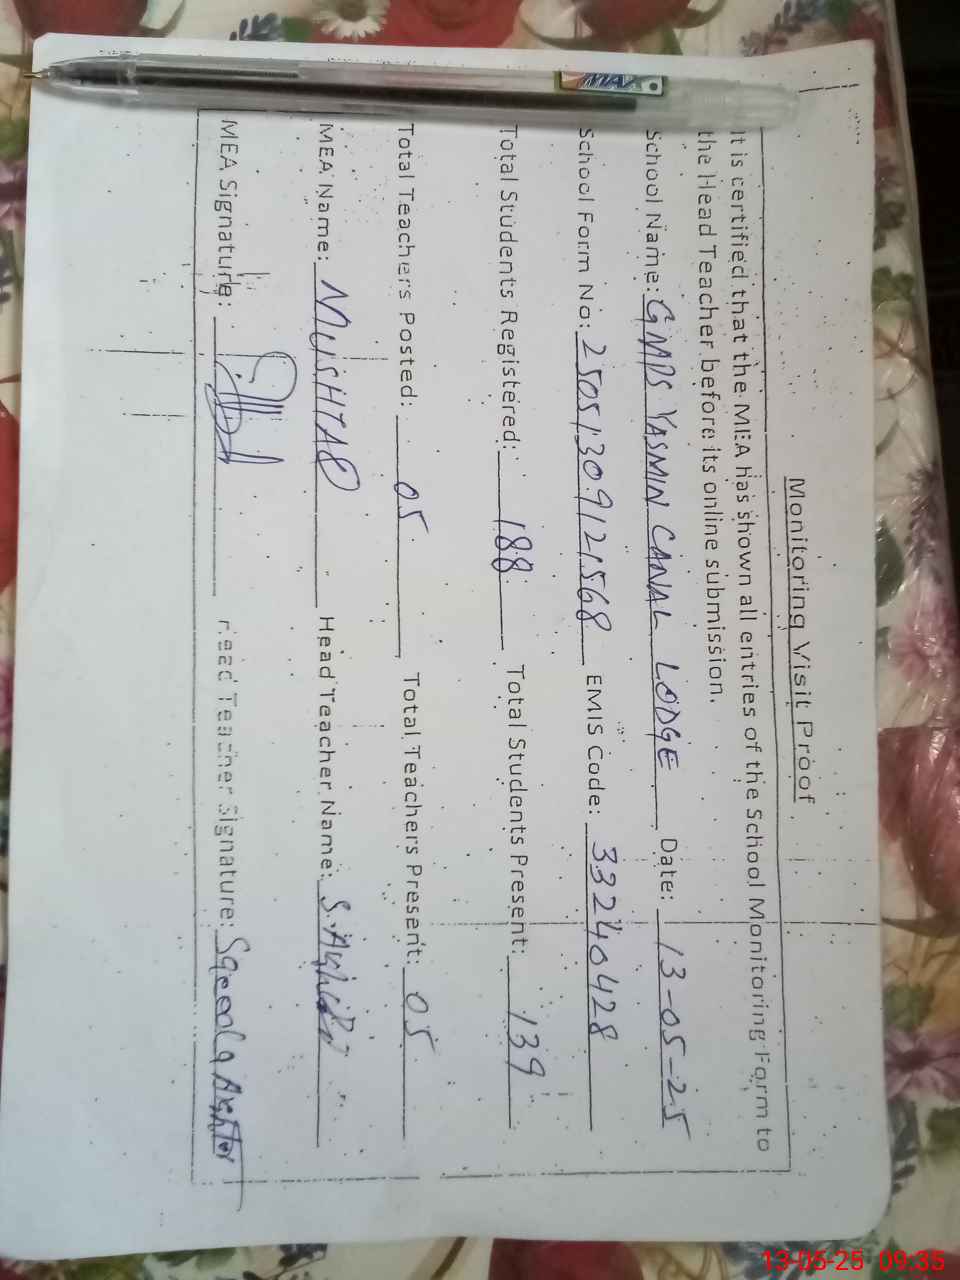 Monitoring Visit Proof
It is certified that the MEA has shown all entries of the School Monitoring Form to
the Head Teacher before its online submission.
School Name: GMPS YASMIN CANAL LODGE Date: 13-05-25
School Form No: 25051309121568 EMIS Code: 33240428
Total Students Registered: 188 Total Students Present: 139
Total Teachers Posted: 05 Total Teachers Present: 05
MEA Name: MUSHTAQ Head Teacher Name: S.
MEA Signature: Head Teacher Signature: Saeeda Akhtar
MAX
13-05-25 09:35